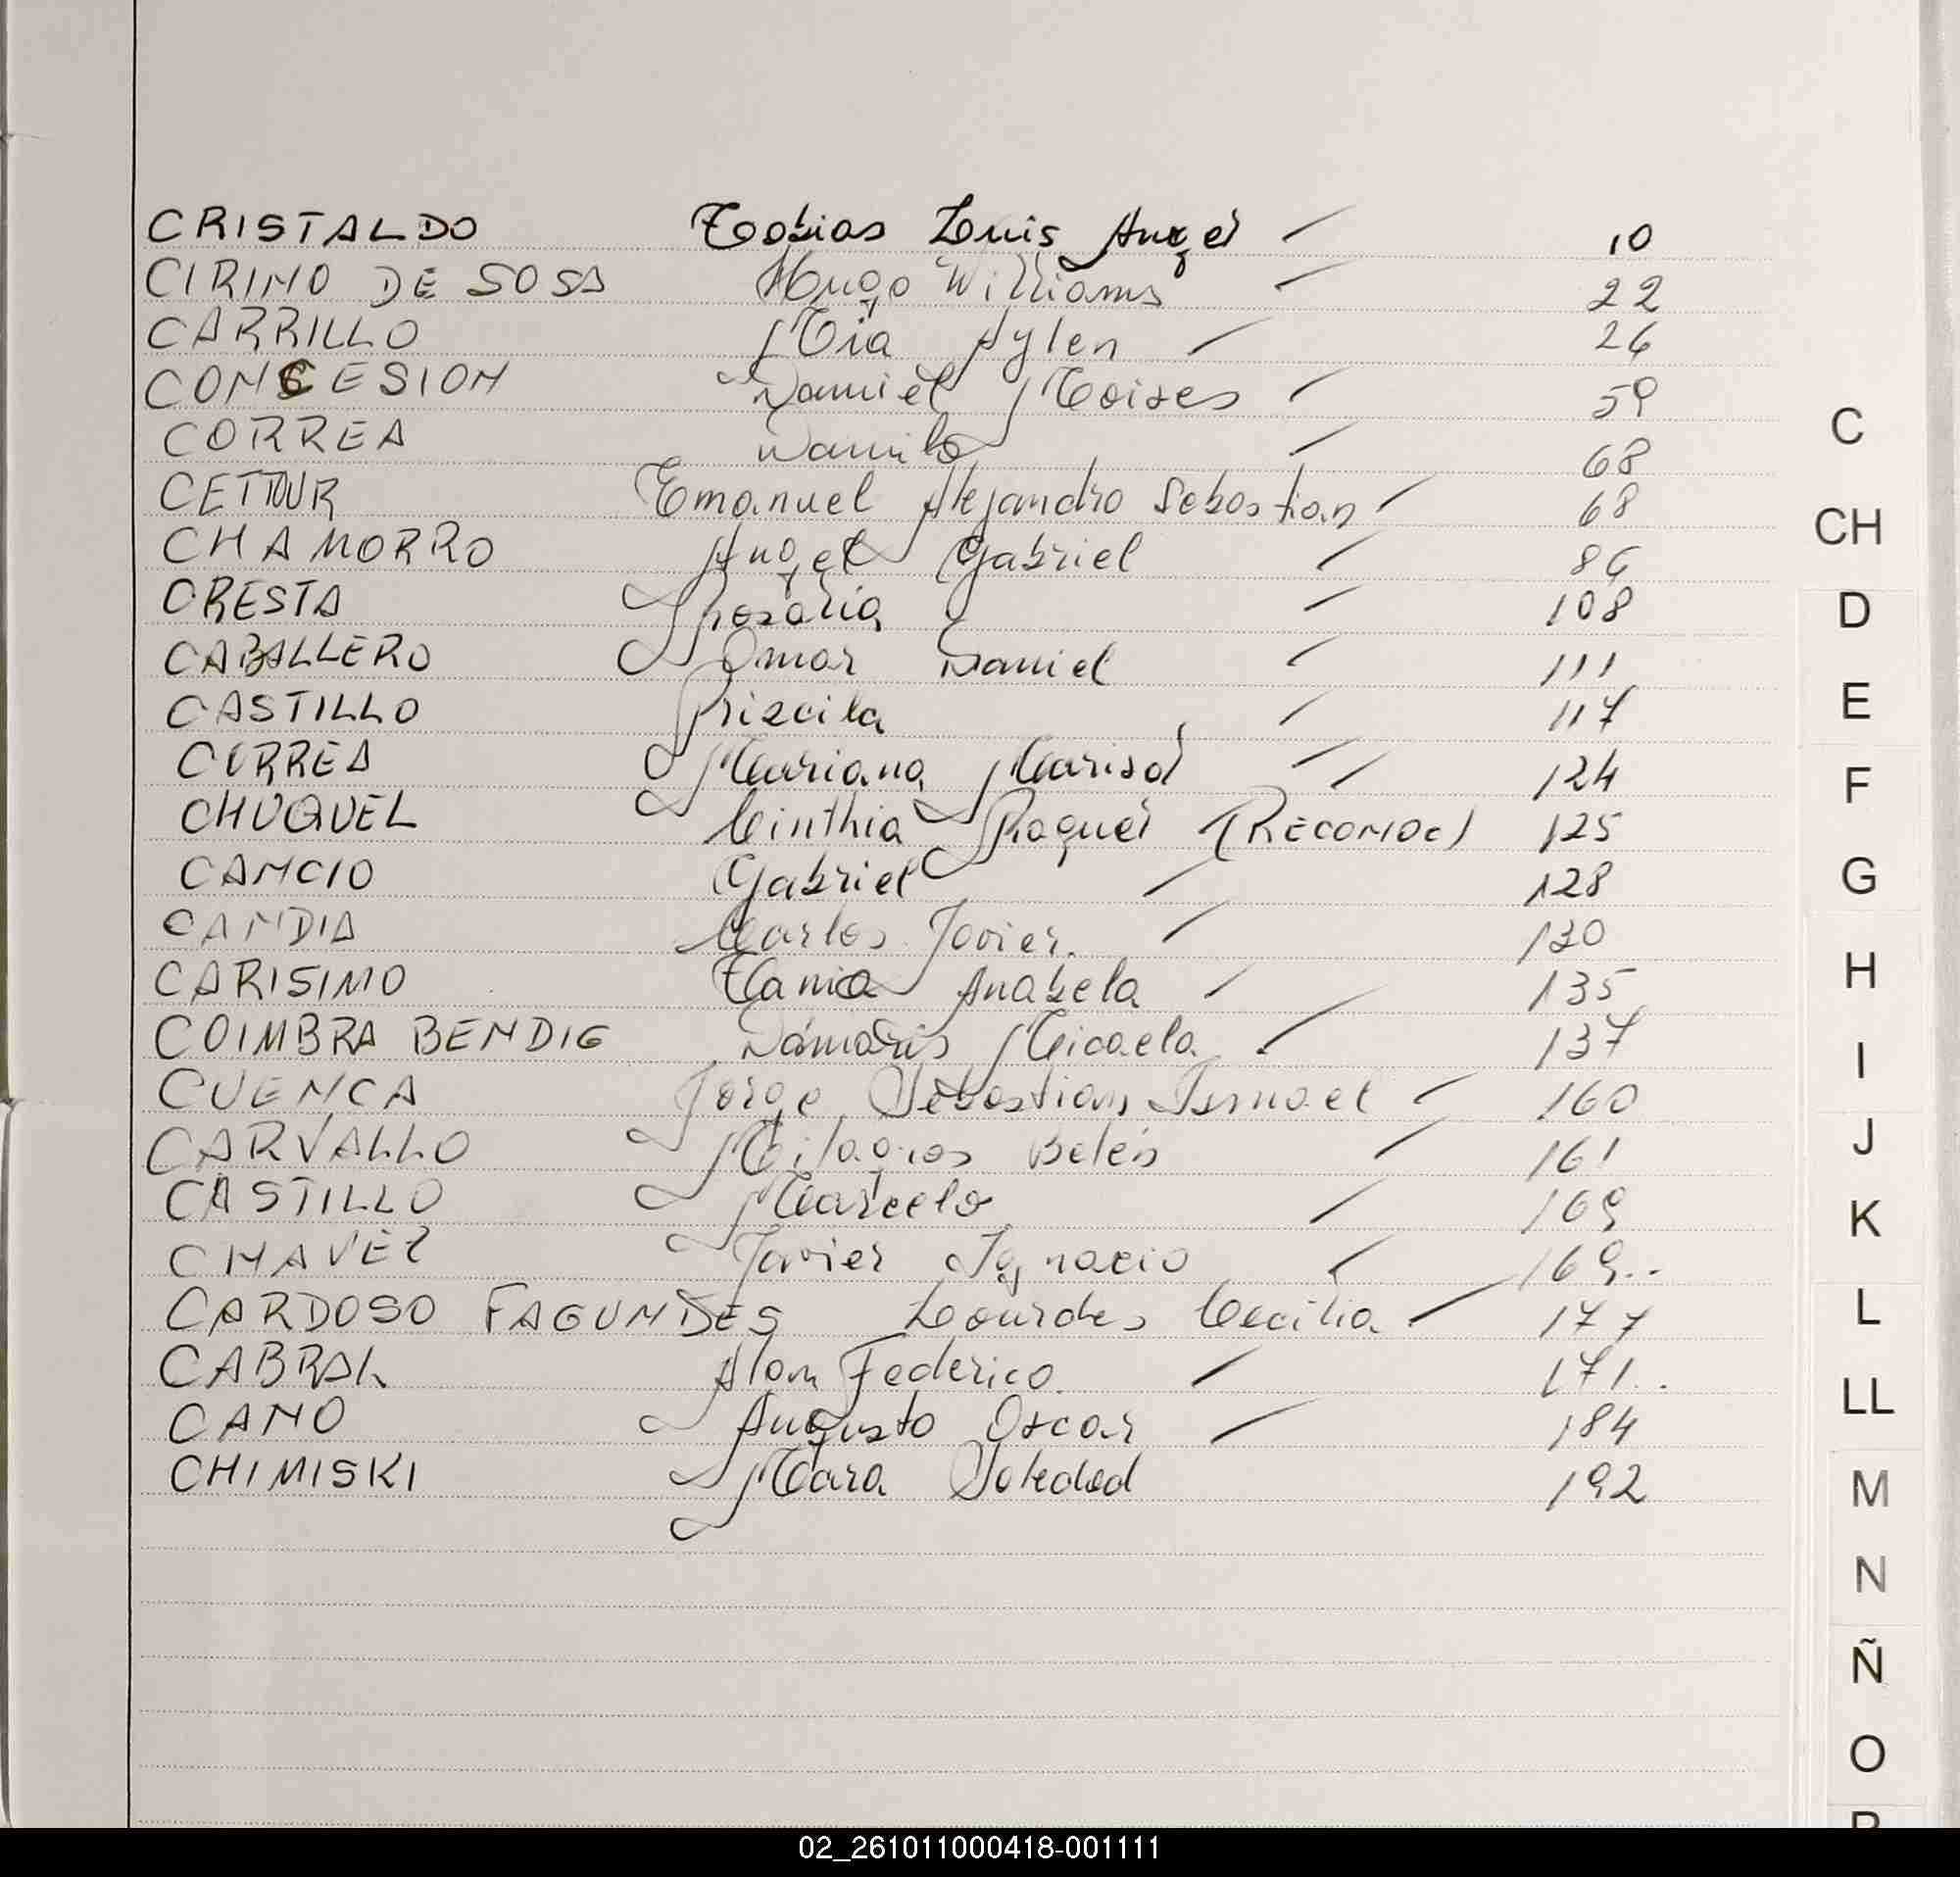 CRISTALDO Tobias Luis Angel / 10
CIRINO DE SOSA Hugo Williams / 22
CARRILLO Mia Aylen / 26
CONCESION Daniel Moises / 59
CORREA Danilo / 68
CETTOUR Emanuel Alejandro Sebastian / 68
CHAMORRO Angel Gabriel / 86
CRESTA Rosalia / 108
CABALLERO Omar Daniel / 111
CASTILLO Priscila / 117
CORREA Mariana Marisol // 124
CHUQUEL Cinthia Raquel (RECONOC) 125
CANCIO Gabriel / 128
CANDIA Carlos Javier. / 130
CARISIMO Tania Anabela / 135
COIMBRA BENDIG Dámaris Micaela / 137
CUENCA Jorge Sebastian Ismael / 160
CARVALLO Milagros Belén / 161
CASTILLO Marcelo / 169
CHAVEZ Javier Ignacio / 169..
CARDOSO FAGUNDES Lourdes Cecilia / 177
CABRAL Alan Federico / 171..
CANO Augusto Oscar / 184
CHIMISKI Mara Soledad 192
C
CH
D
E
F
G
H
I
J
K
L
LL
M
N
Ñ
O
02_261011000418-001111